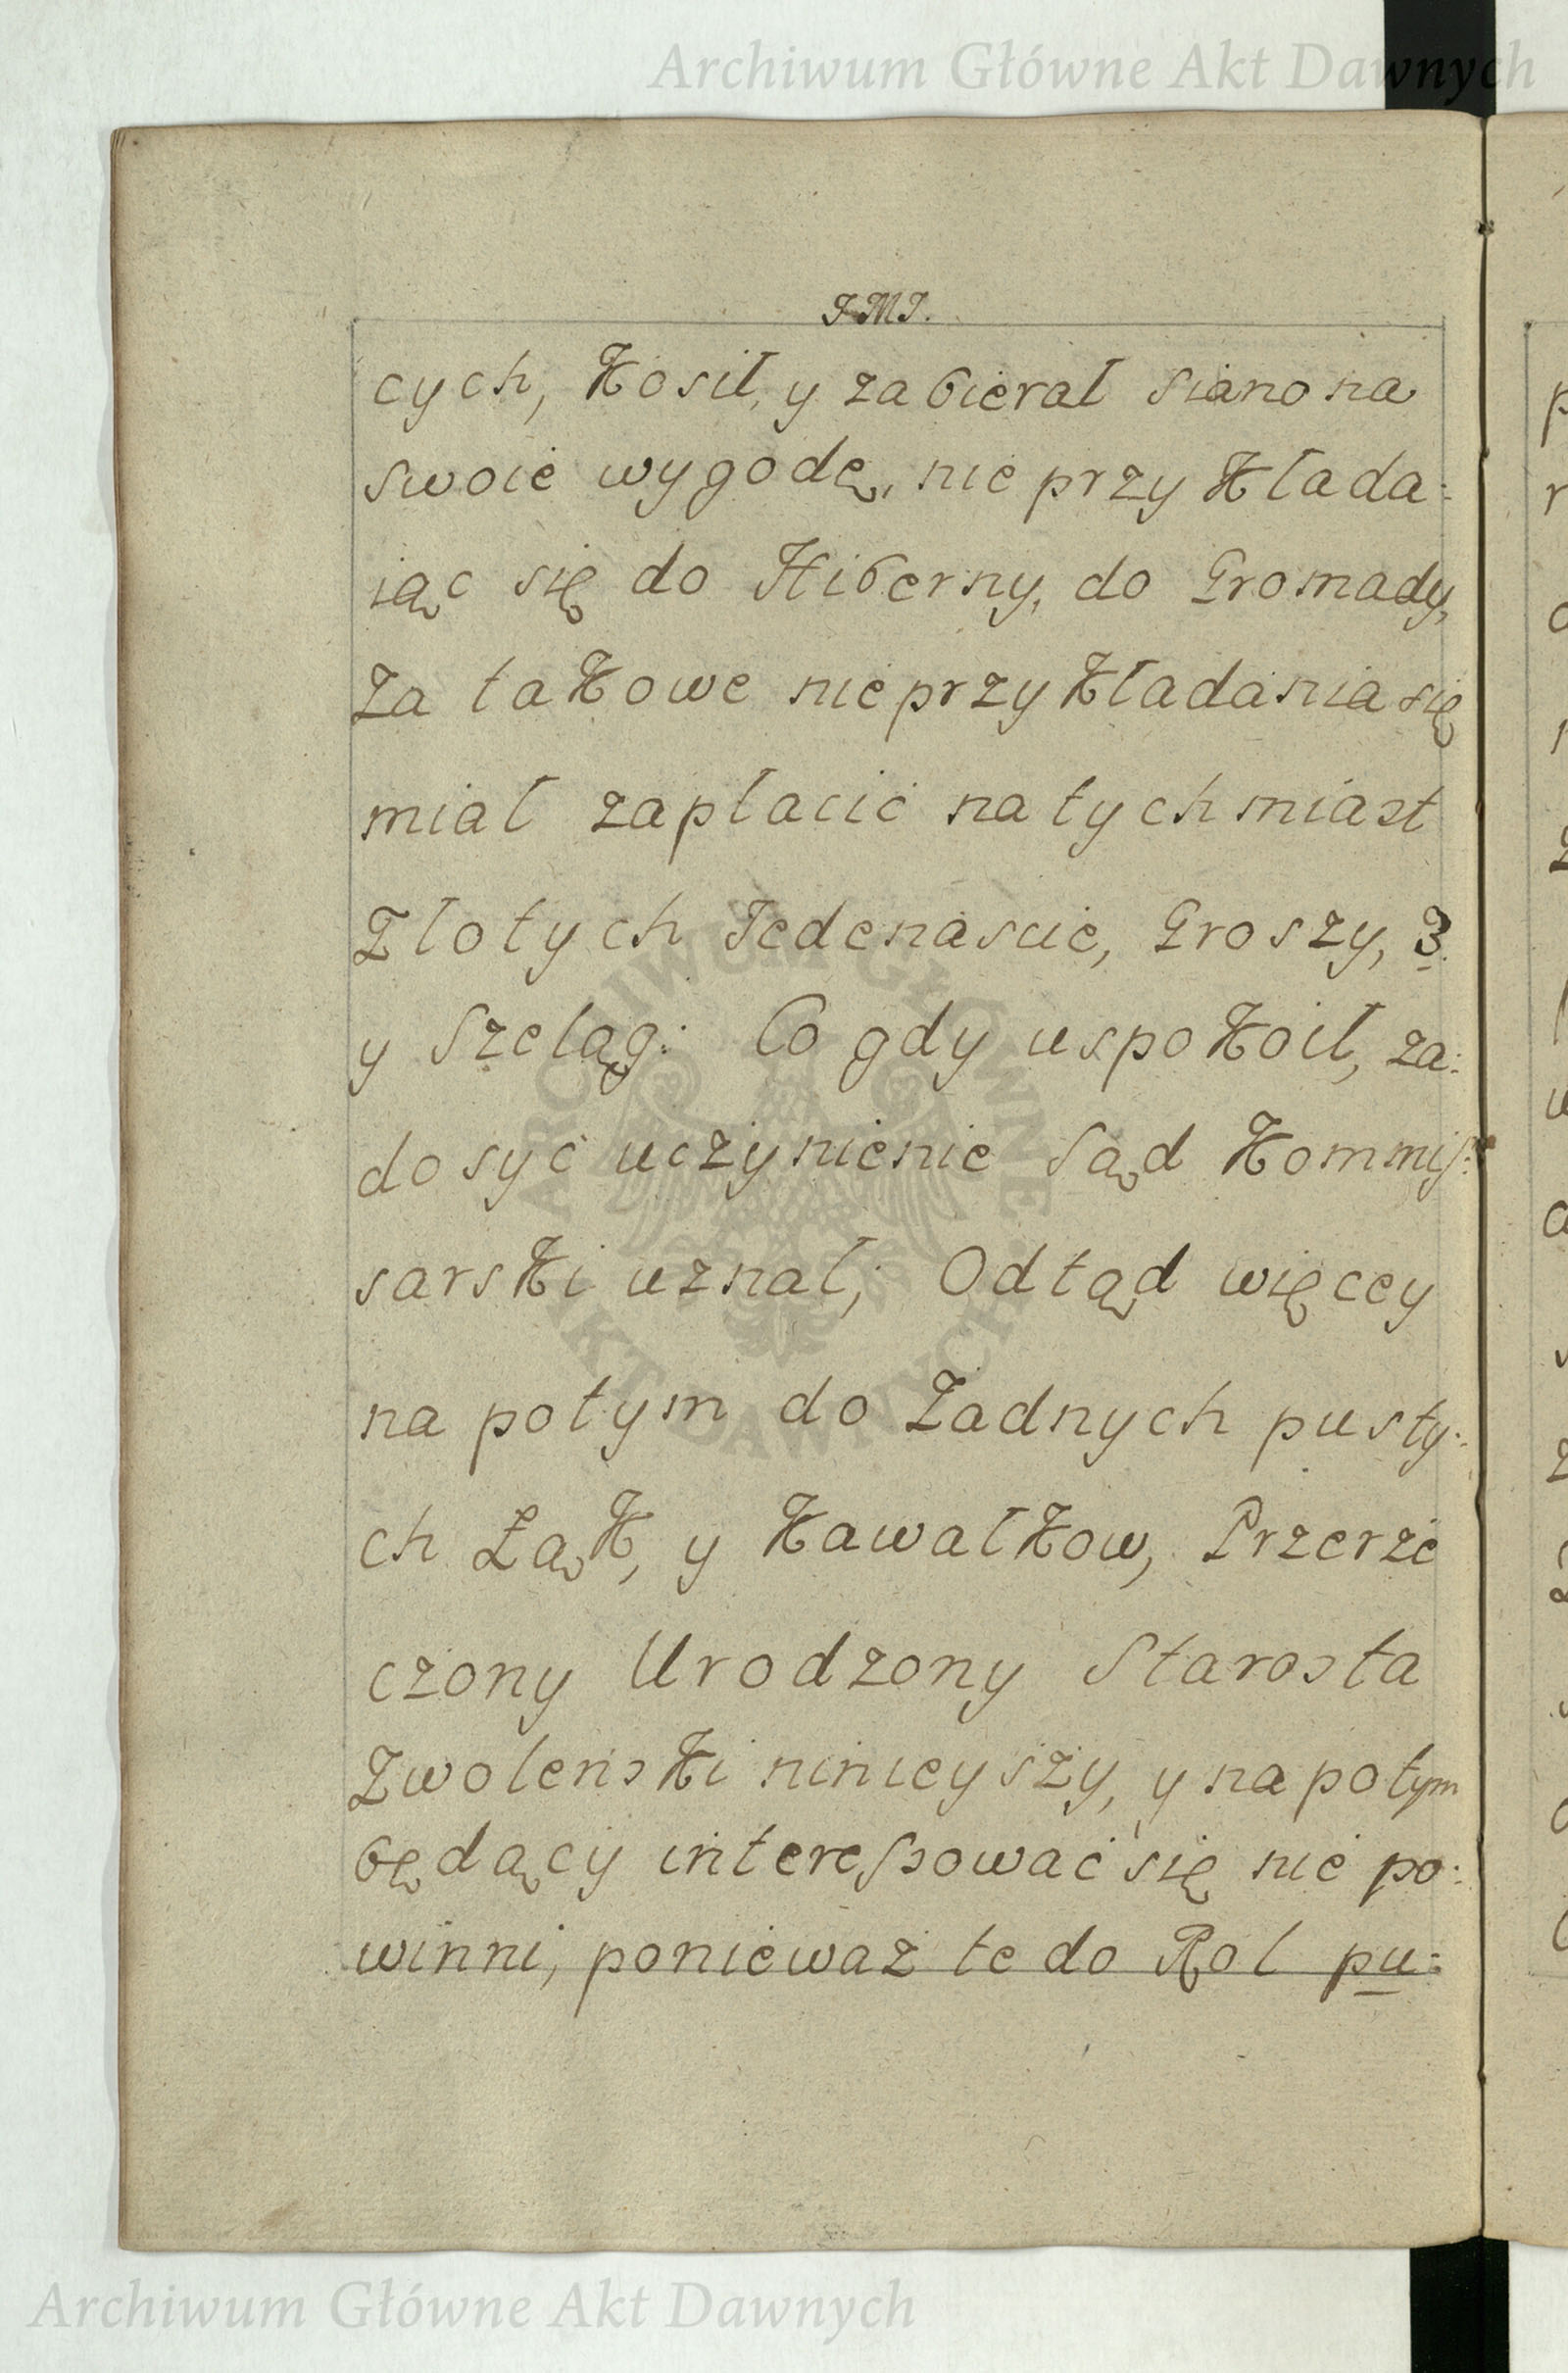 Archiwum Główne Akt Dawnych
J.M.J.
cych, Kosił, y zabierał siano na
swoię wygodę, nie przy Kłada:
iąc się do Hiberny, do Gromady,
Za taKowe nieprzyKładania się
miał zapłacić natychmiast
Złotych Jedenascie, Groszy, 3.
y Szeląg: Co gdy uspoKoił, za:
dosyć uczynienie Sąd Kommis:
sarsKi uznał; Odtąd więcey
na potym do Żadnych pusty:
ch ŁąK, y KawałKow, Przerze
czony Urodzony Starosta
ZwoleńsKi ninieyszy, y na potym
będący interessować się nie po:
winni, ponieważ te do Rol pu:
ARCHIWUM GŁÓWNE AKT DAWNYCH
Archiwum Główne Akt Dawnych